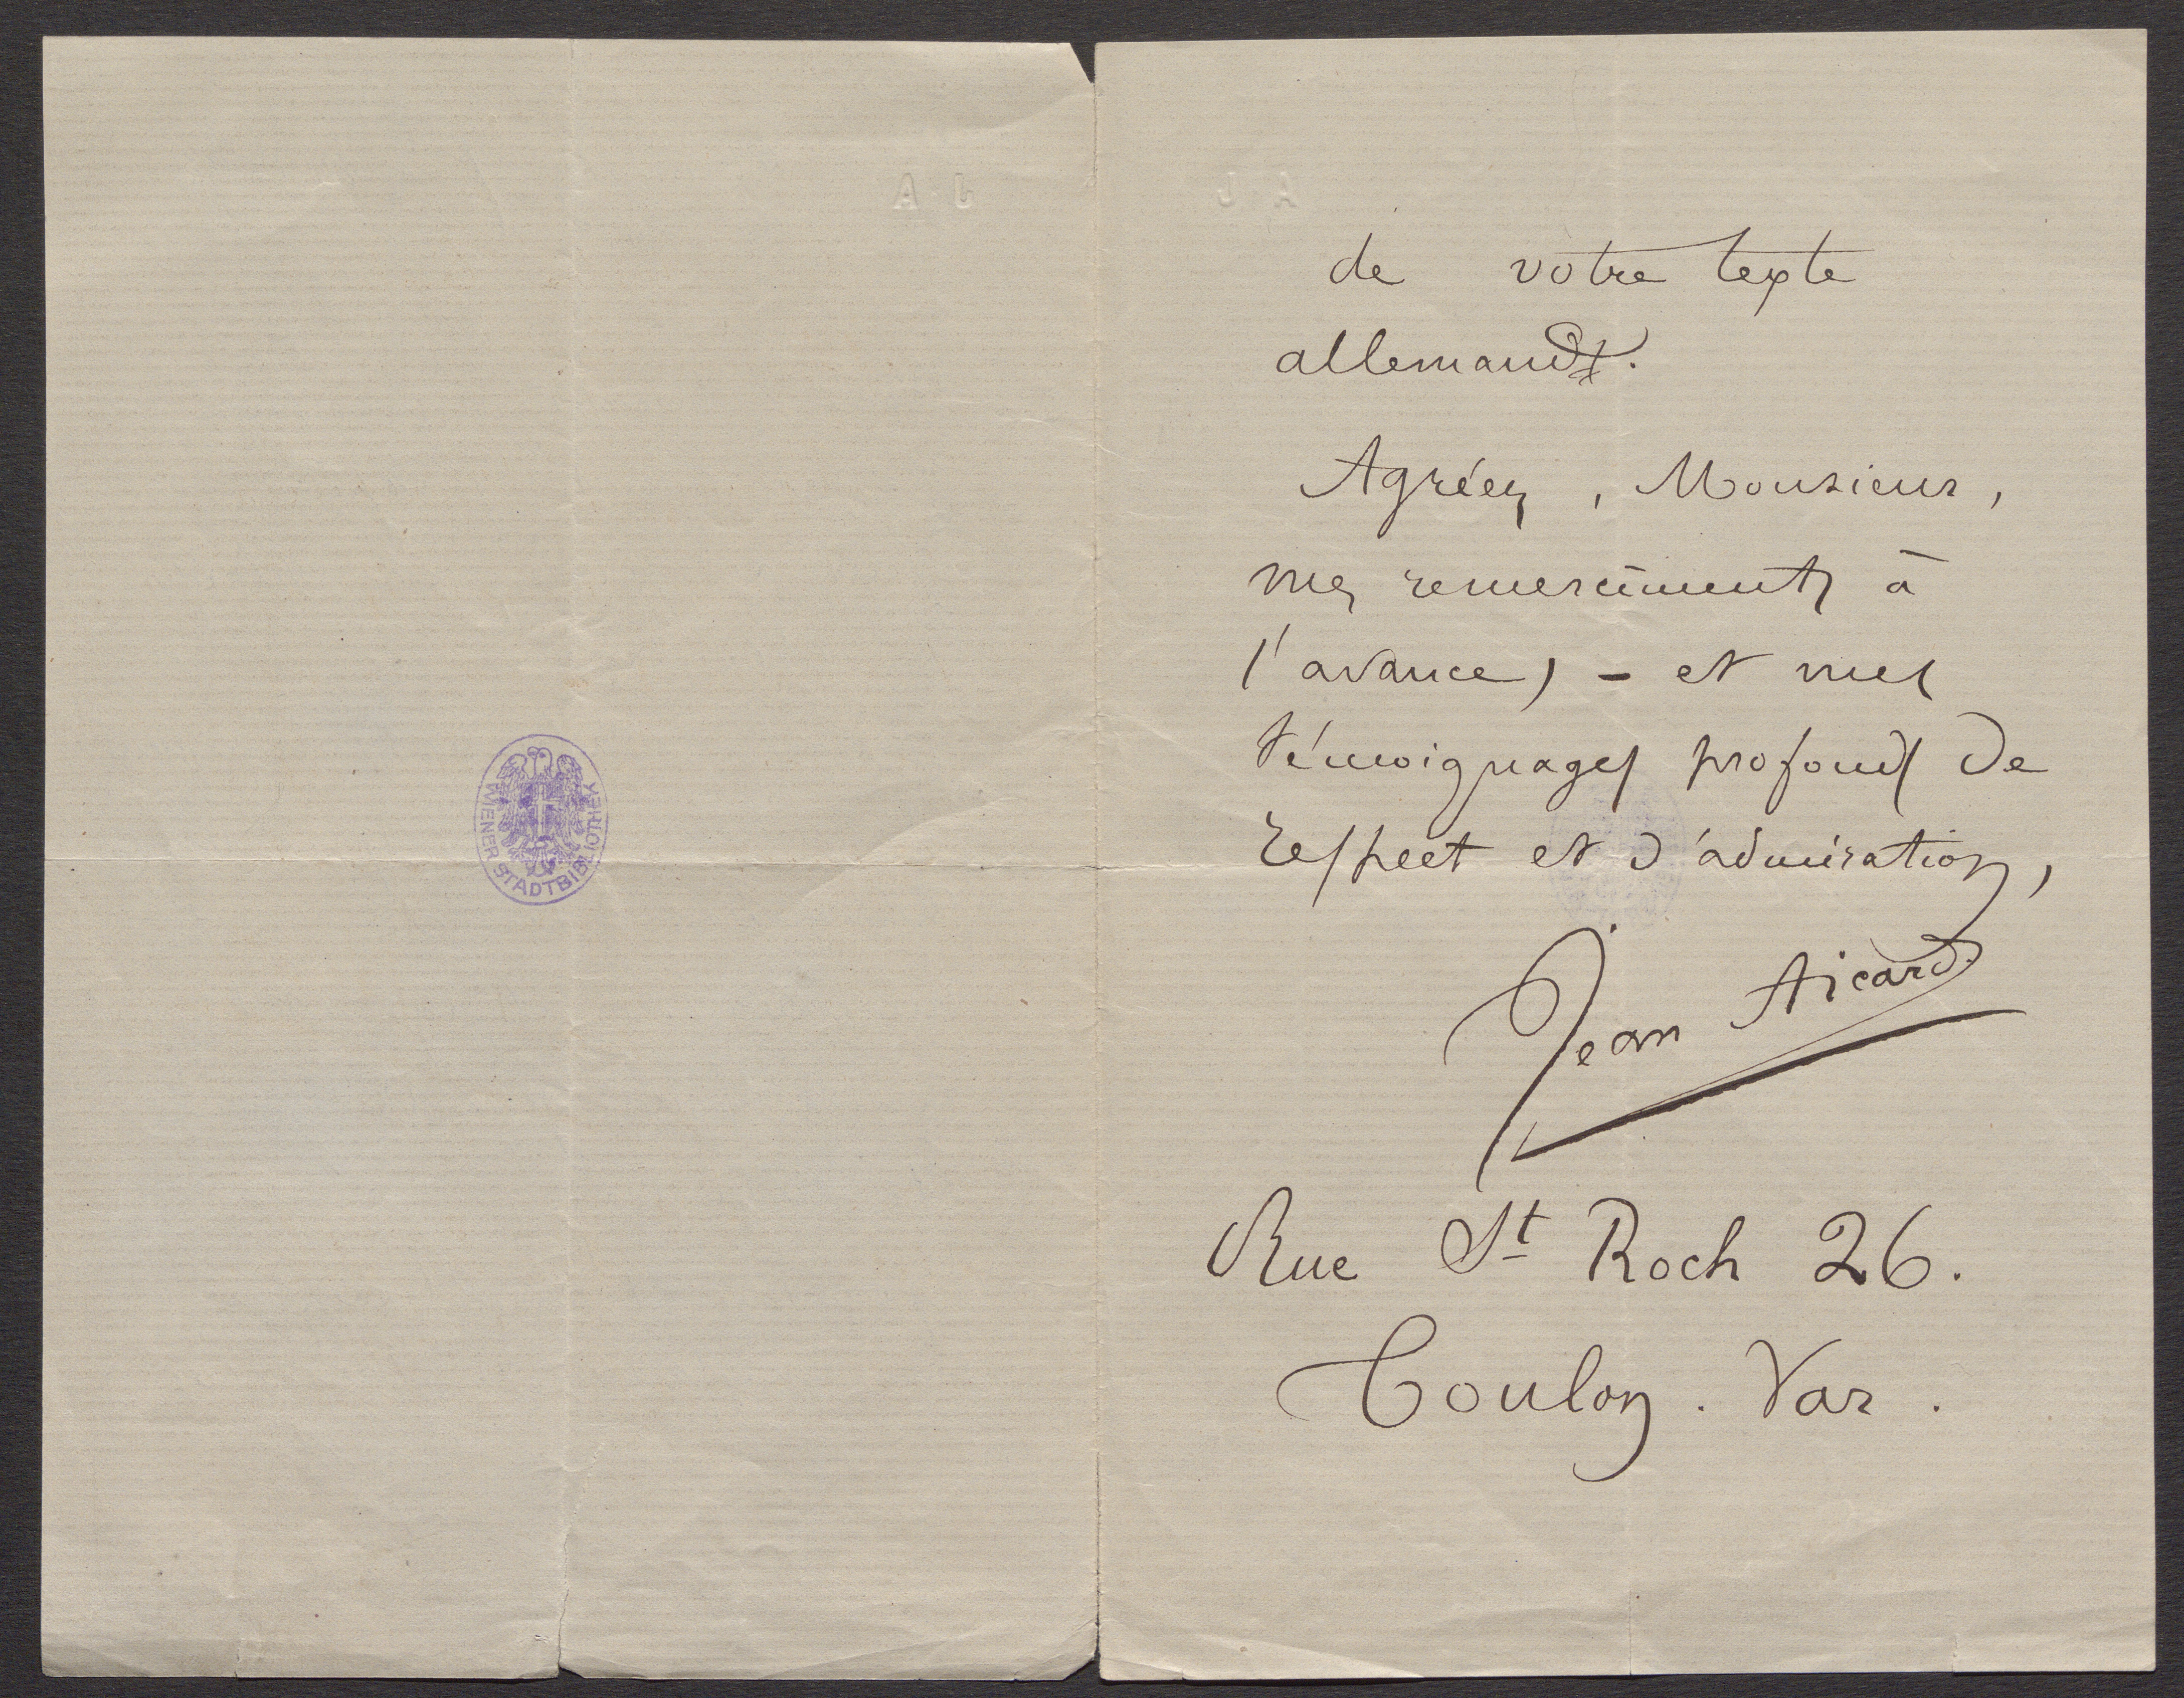 WIENER STADTBIBLIOTHEK
J A
de votre texte
allemand.
Agréez, Monsieur,
mes remerciments à
l'avance, - et mes
témoignages profonds de
respect et d'admiration,
Jean Aicard
Rue St Roch 26.
Toulon. Var.